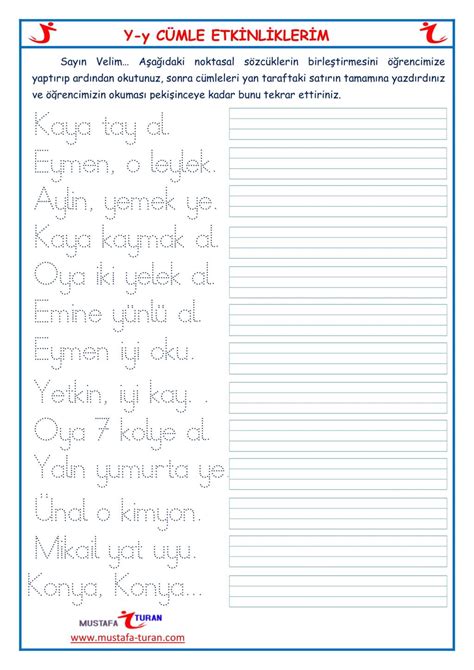 Y-y CÜMLE ETKİNLİKLERİM
Sayın Velim... Aşağıdaki noktasal sözcüklerin birleştirmesini öğrencimize
yaptırıp ardından okutunuz, sonra cümleleri yan taraftaki satırın tamamına yazdırdınız
ve öğrencimizin okuması pekişinceye kadar bunu tekrar ettiriniz.
Kaya tay al.
Eymen, o leylek.
Aylin, yemek ye.
Kaya kaymak al.
Oya iki yelek al.
Emine yünlü al.
Eymen iyi oku.
Yetkin, iyi kay. .
Oya 7 kolye al.
Yalın yumurta ye.
Ünal o kimyon.
Mikail yat uyu.
Konya, Konya...
MUSTAFA TURAN
www.mustafa-turan.com